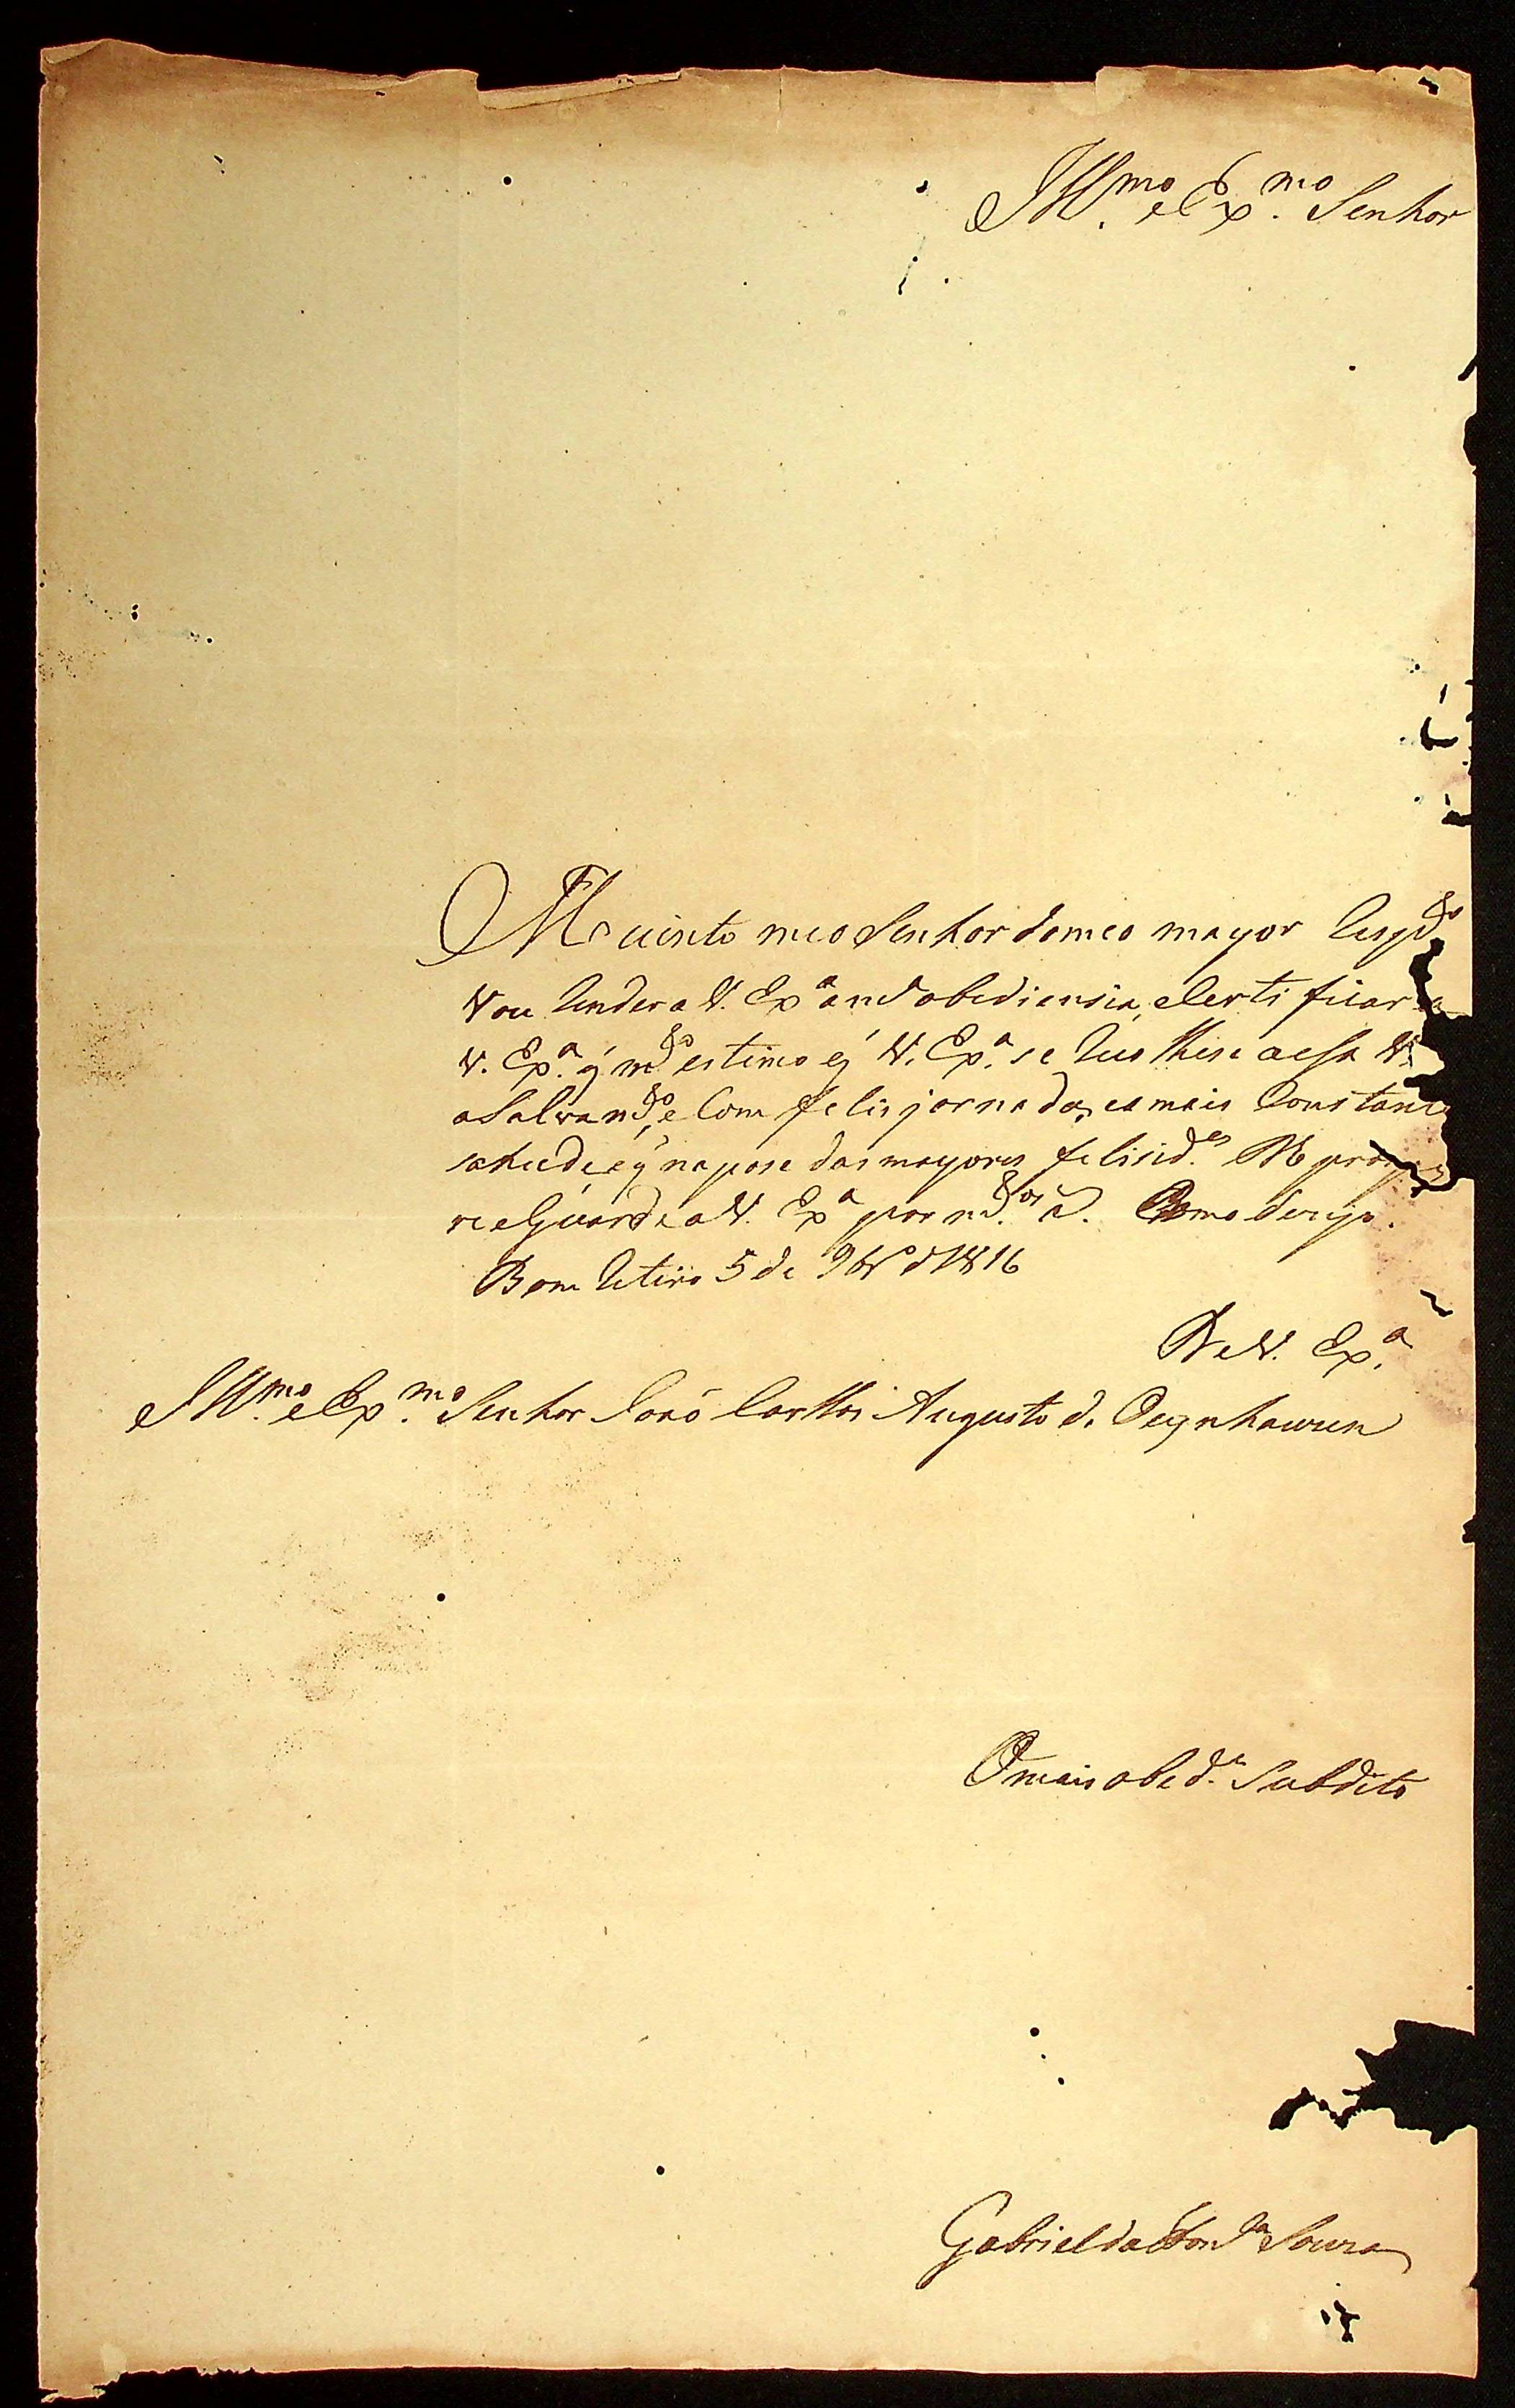 Ill.mo e Ex.mo Senhor
Muinto meo Senhor do meo mayor Respd.o
Vou Render a V. Ex.a a m.a obediensia, eCertificar a
V. Ex.a q' m.do estimo eq' V. Ex.a se Recolhese aesa V.a
aSalvam.do, e Com felis jornada, ea mais Constan
sahude, eq' na pose das mayores felisid.es D.s prospe
re eGuarde aV. Ex.a por m.dos a. Como dezejo.
Bom Retiro 5 de 9br.o d 1816
De V. Ex.a
Ill.mo e Ex.mo Senhor João Carllos Augusto d. Oeynhawsen
O mais obed.e Subdito
Gabriel da Souza